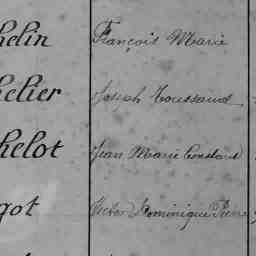 helin François Marie
helier Joseph Toussaint
helot Jean Marie Constant
got Victor Dominique Pierre